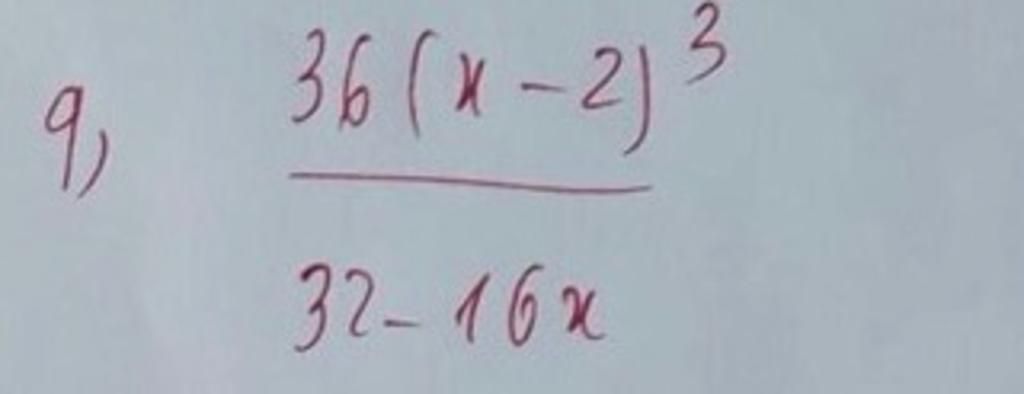 9, 36(x-2)³
32-16x